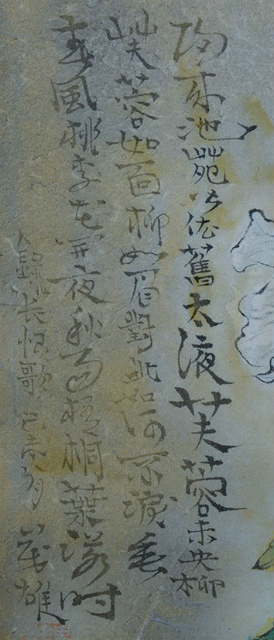 歸來池苑皆依舊太液芙蓉未央柳
芙蓉如面柳如眉對此如何不淚垂
春風桃李花開夜秋雨梧桐葉落時
錄長恨歌 己未 月 茂雄